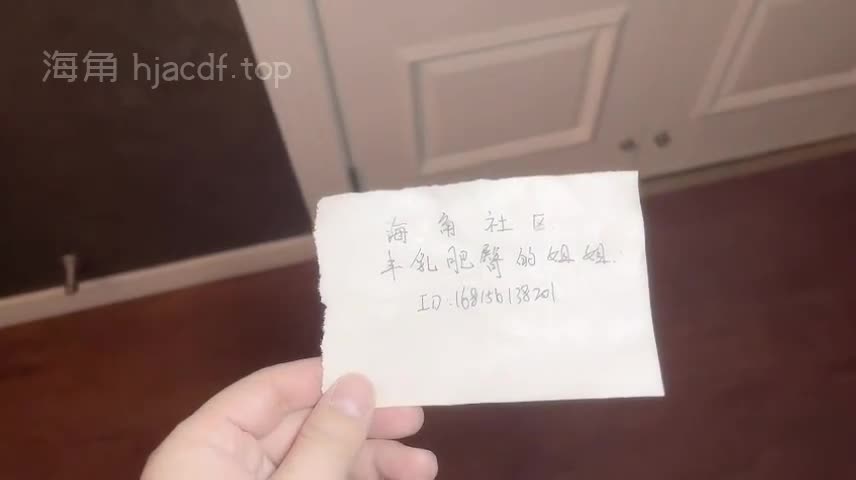 海角 hjacdf.top
海角社区
丰乳肥臀的姐姐.
ID.168156138201